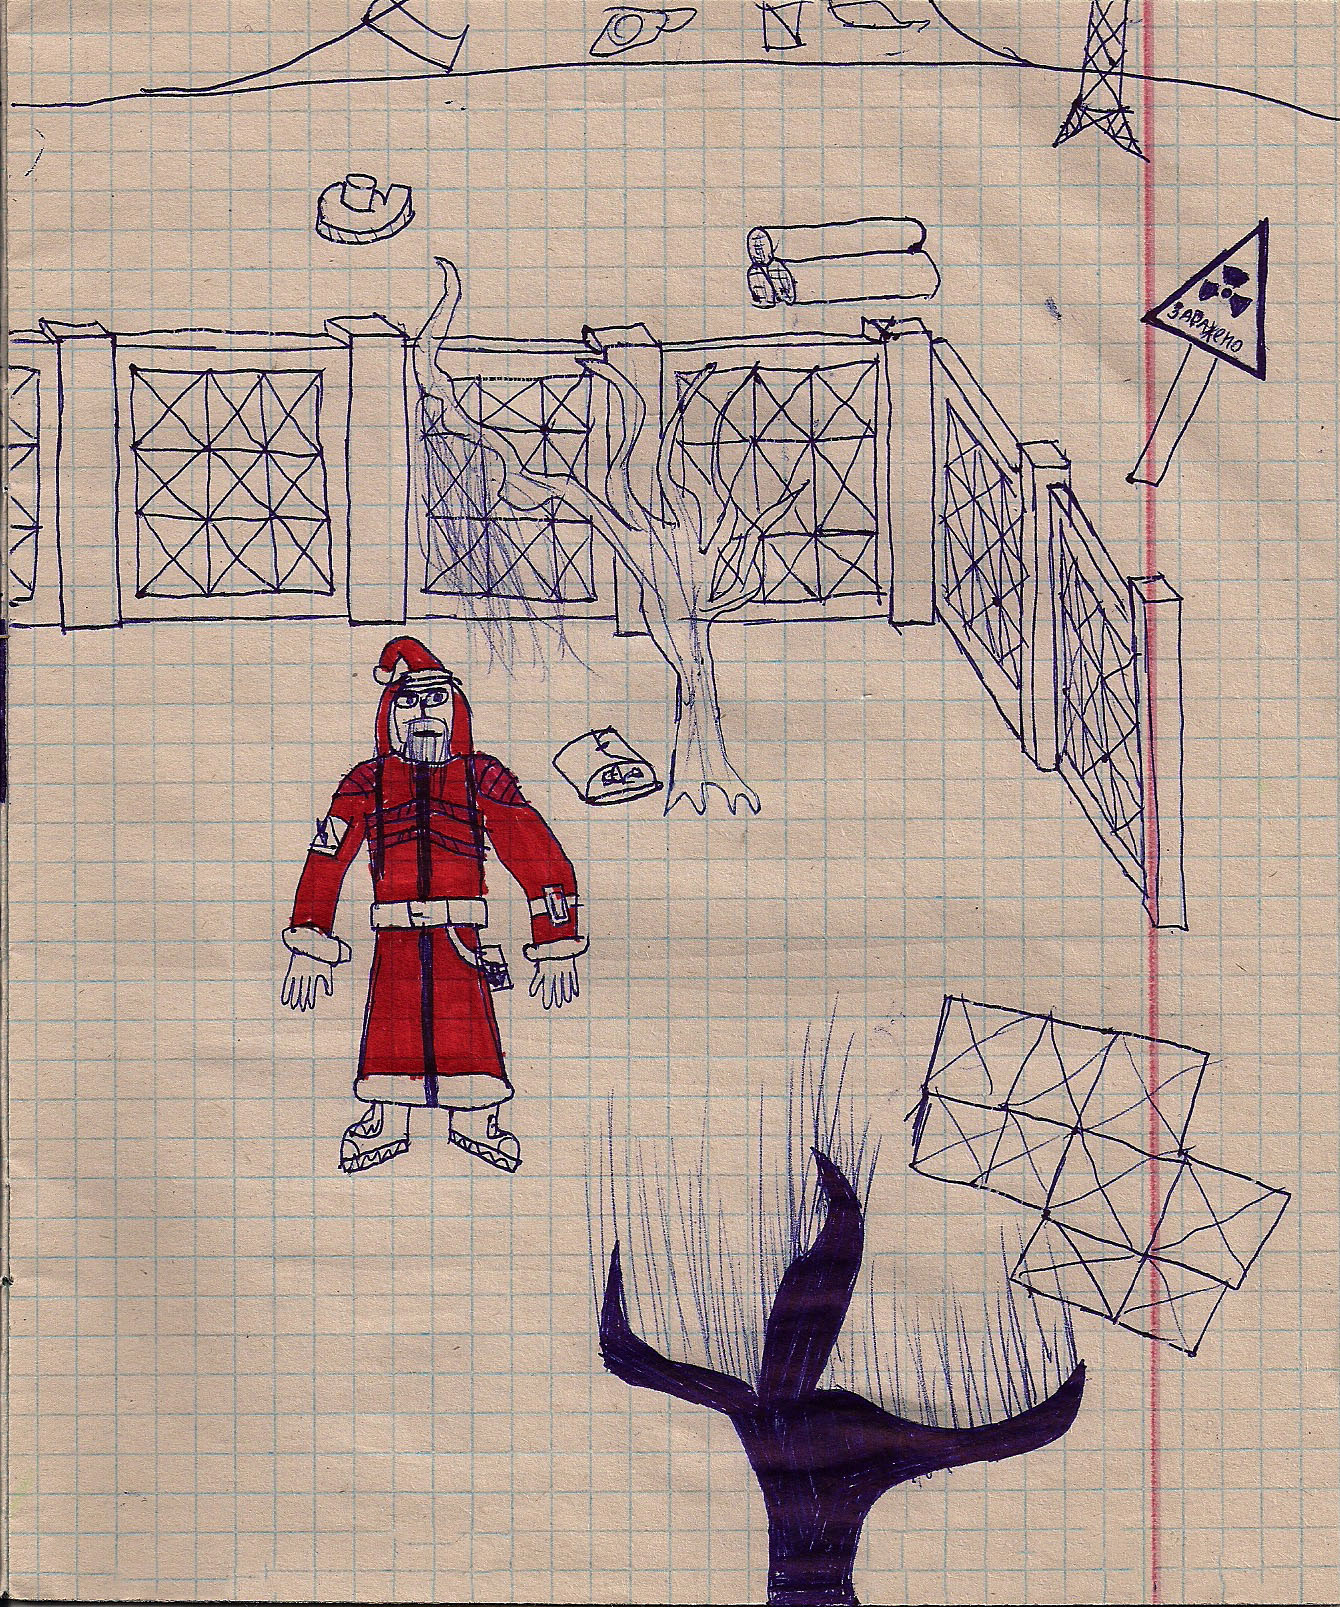 ЗАРАЖЕНО